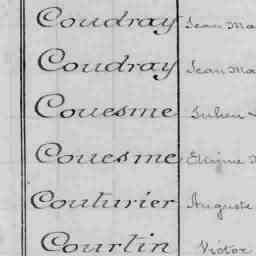 Coudray Jean Ma
Coudray Jean Ma
Couesme Julien
Couesme
Couturier Auguste
Courtin Victor